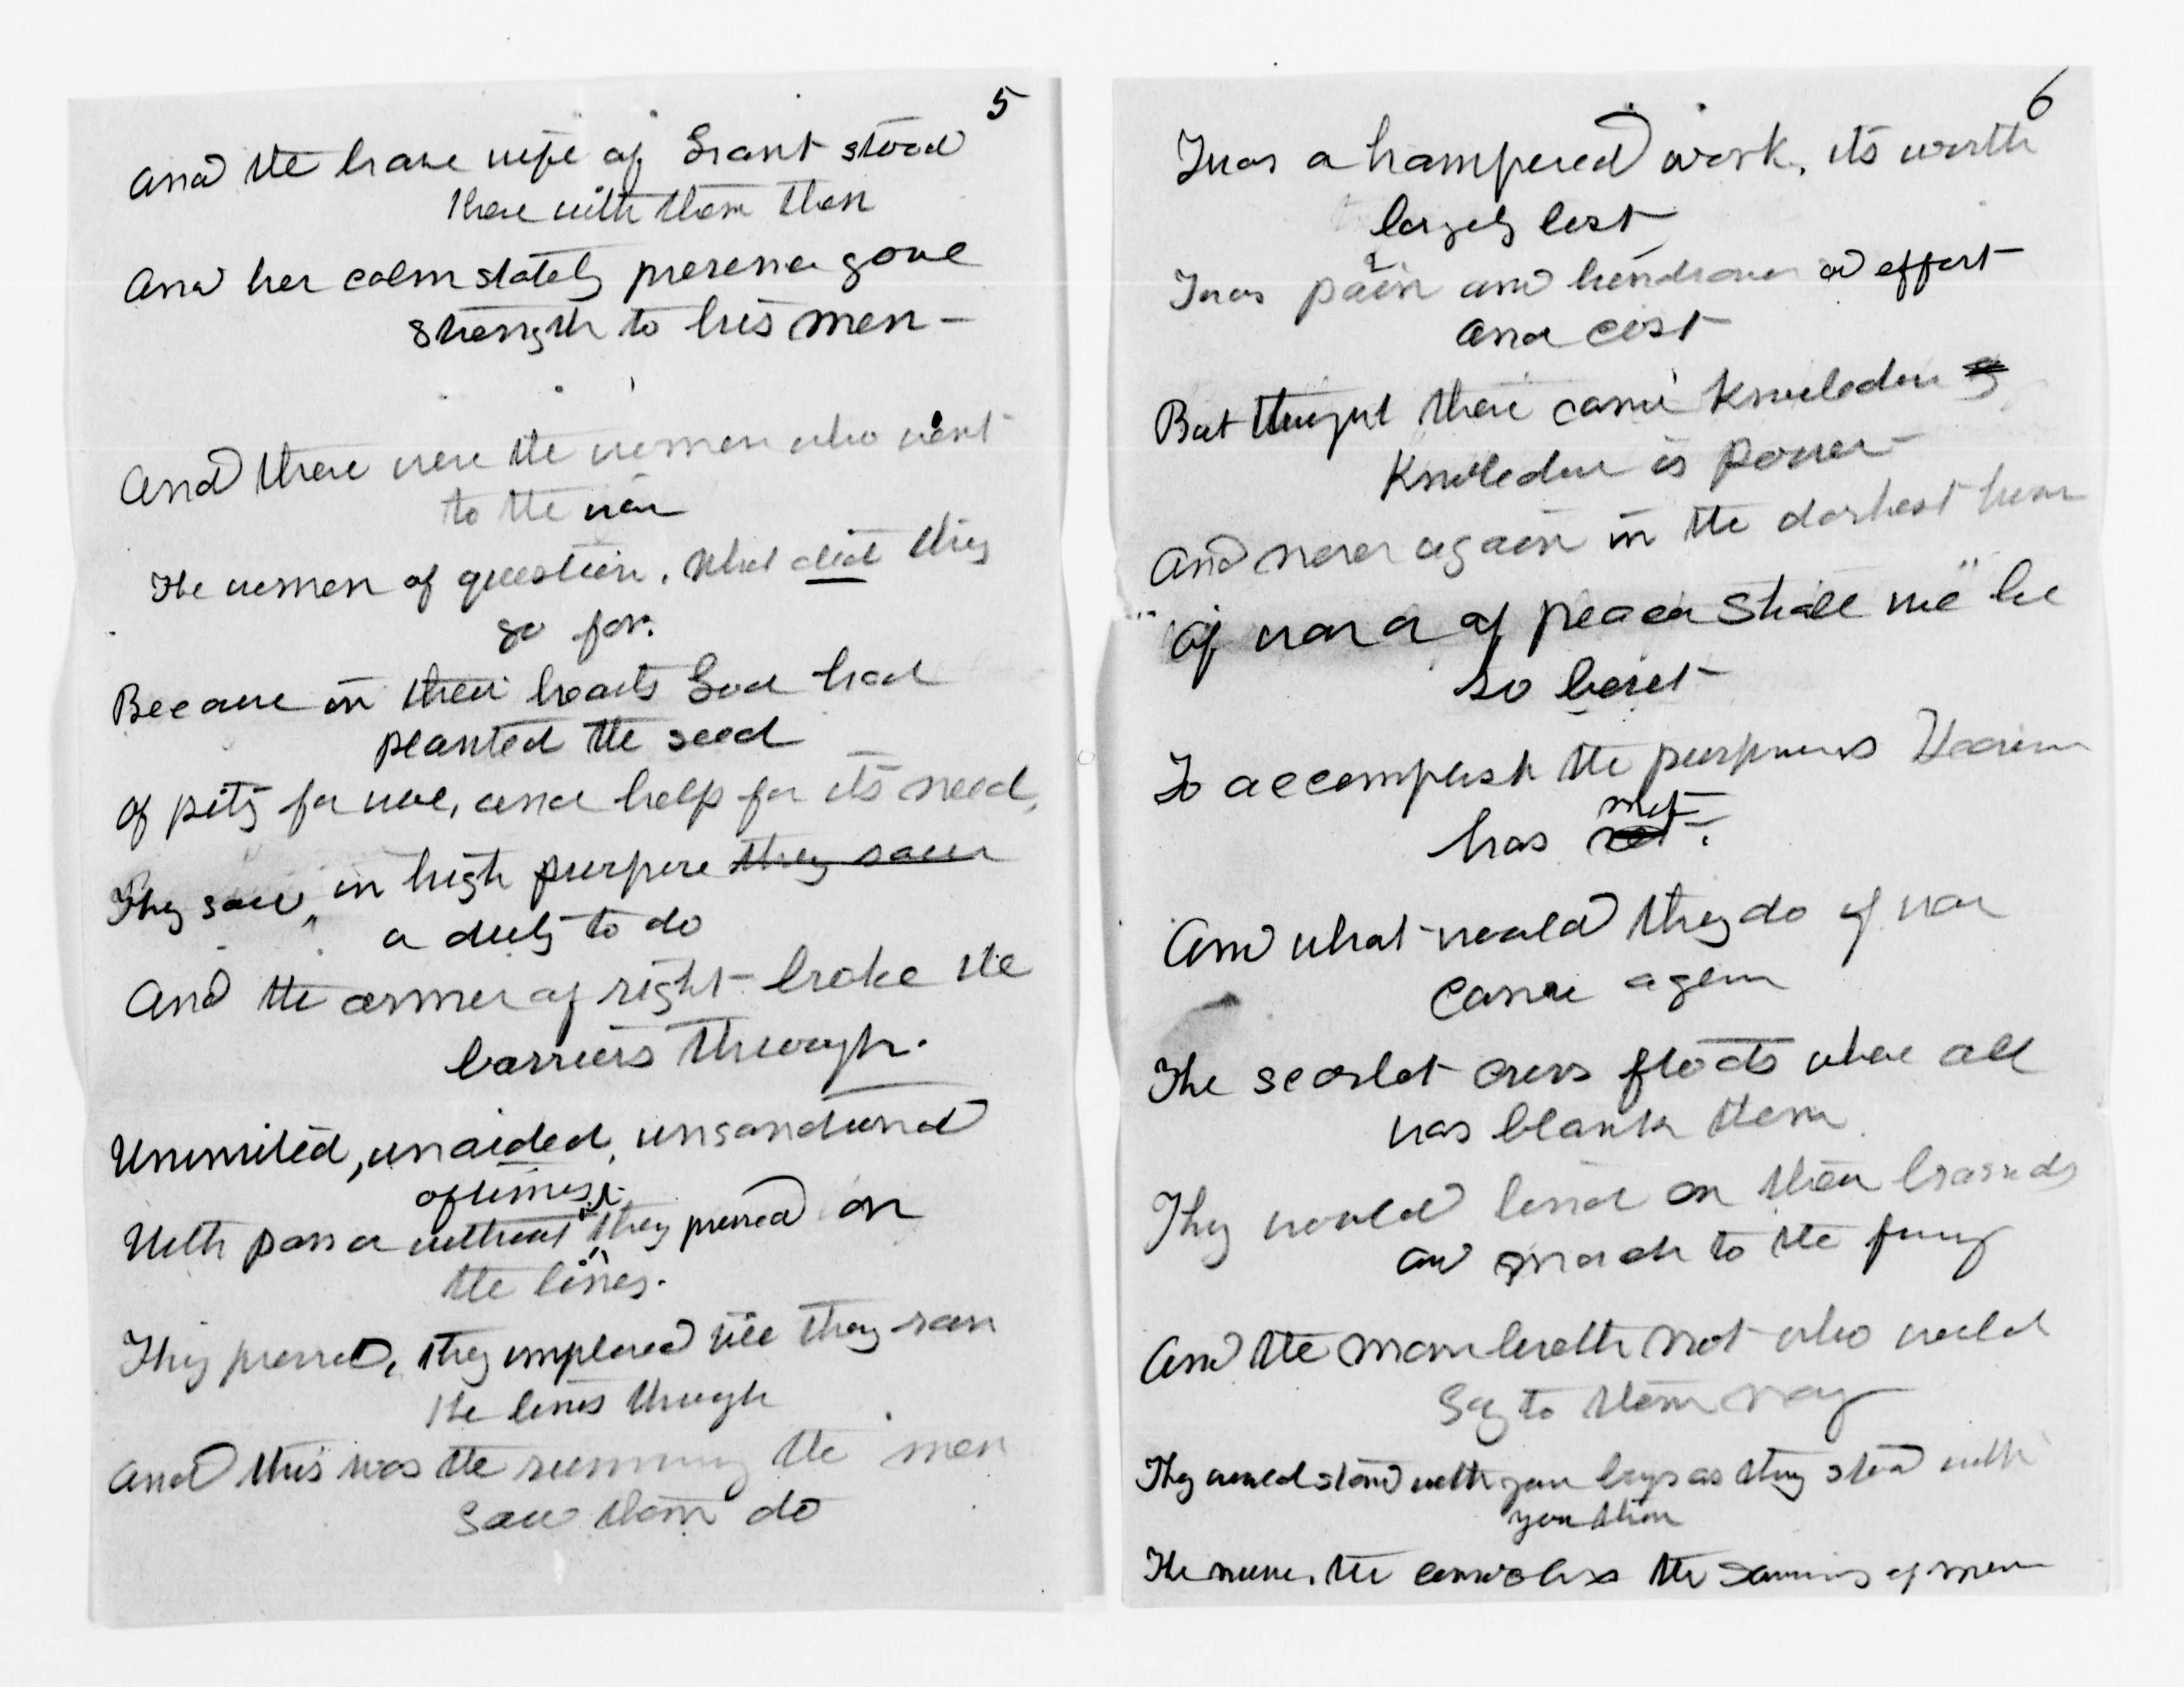 5
And the brave wife of Grant stood
there with them then
And her calm stately presence gave
strength to his men —
And there were the women who went
to the war
The women of question. What did they
go for.
Because in their hearts God had
planted the seed
Of pity for woe, and help for its need,
They saw, in high purpose they saw
a duty to do
And the armor of right broke the
barriers through.
Uninvited, unaided, unsanctioned
oftimes,
With pass or without they pressed on
the lines.
They pressed, they implored till they ran
the lines through
And this was the running the men
saw them do
6
Twas a hampered work, its worth
largely lost
Twas pain and hindrance or effort
and cost
But through there came knowledge
Knowledge is power
And never again in the darkest hour
Of war or of peace shall we be
so beset
To accomplish the purposes Heaven
has met.
And what would they do if war
came again
The scarlet cross floats where all
was blank then.
They would bind on their brassards
and march to the fray
And the man liveth not who could
say to them nay
They would stand with you boys as they stood with
you then
The nurses, the consolers the saviors of men